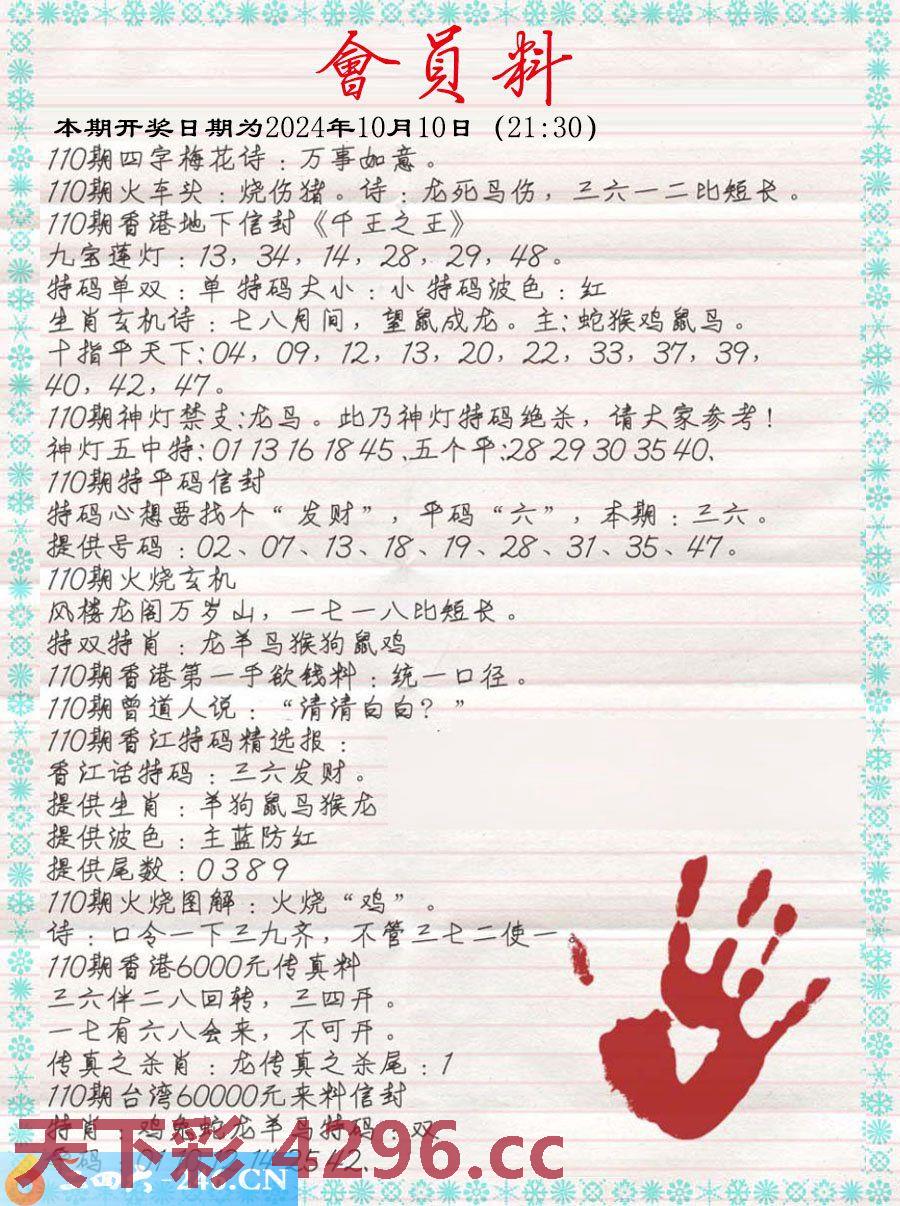 會員料
本期开奖日期为2024年10月10日（21:30）
110期四字梅花诗：万事如意。
110期火车头：烧伤猪。诗：龙死马伤，三六一二比短长。
110期香港地下信封《千王之王》
九宝莲灯：13，34，14，28，29，48。
特码单双：单 特码大小：小 特码波色：红
生肖玄机诗：七八月间，望鼠成龙。主:蛇猴鸡鼠马。
十指平天下:04，09，12，13，20，22，33，37，39，
40，42，47。
110期神灯禁支:龙马。此乃神灯特码绝杀，请大家参考！
神灯五中特:01 13 16 18 45、五个平:28 29 30 35 40、
110期特平码信封
特码心想要找个“发财”，平码“六”，本期：三六。
提供号码：02、07、13、18、19、28、31、35、47。
110期火烧玄机
风楼龙阁万岁山，一七一八比短长。
特双特肖：龙羊马猴狗鼠鸡
110期香港第一手欲钱料：统一口径。
110期曾道人说：“清清白白？”
110期香江特码精选报：
香江话特码：三六发财。
提供生肖：羊狗鼠马猴龙
提供波色：主蓝防红
提供尾数：0 3 8 9
110期火烧图解：火烧“鸡”。
诗：口令一下三九齐，不管三七二使一
110期香港6000元传真料
三六伴二八回转，三四开。
一七有六八会来，不可开。
传真之杀肖：龙传真之杀尾：1
110期台湾60000元来料信封
特肖：鸡兔蛇龙羊马特码：双
天下彩 4296.cc
246.CN